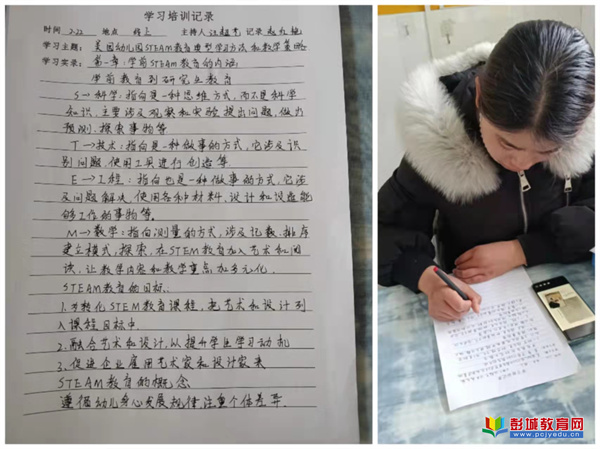 学习培训记录
时间 2.22 地点 线上 主持人 记录
学习主题: 美国幼儿园STEAM教育典型学习方法和教学策略
学习实录: 第一章:学前STEAM教育的内涵
学前教育到研究生教育
S→科学:指向是一种思维方式,而不是科学
知识,主要涉及观察和实验 提出问题,做出
预测.探索事物等
T→技术:指向是一种做事的方式,它涉及识
别问题.使用工具进行创造等
E→工程:指向也是一种做事的方式,它涉
及问题解决,使用各种材料.设计和设造能
够工作的事物等。
M→数学:指向测量的方式,涉及记数.排序
建立模式,探索,在STEM教育加入艺术和阅
读,让教学内容和教学重点加多元化.
STEAM教育的目标.
1.为转化STEM教育课程,把艺术和设计列
入课程目标中.
2.融合艺术和设计.以提升学生学习动机
3.促进企业雇用艺术家和设计家来
STEAM教育的概念
遵循幼儿身心发展规律注重个体差异.
彭城教育网
www.pcjyedu.cn